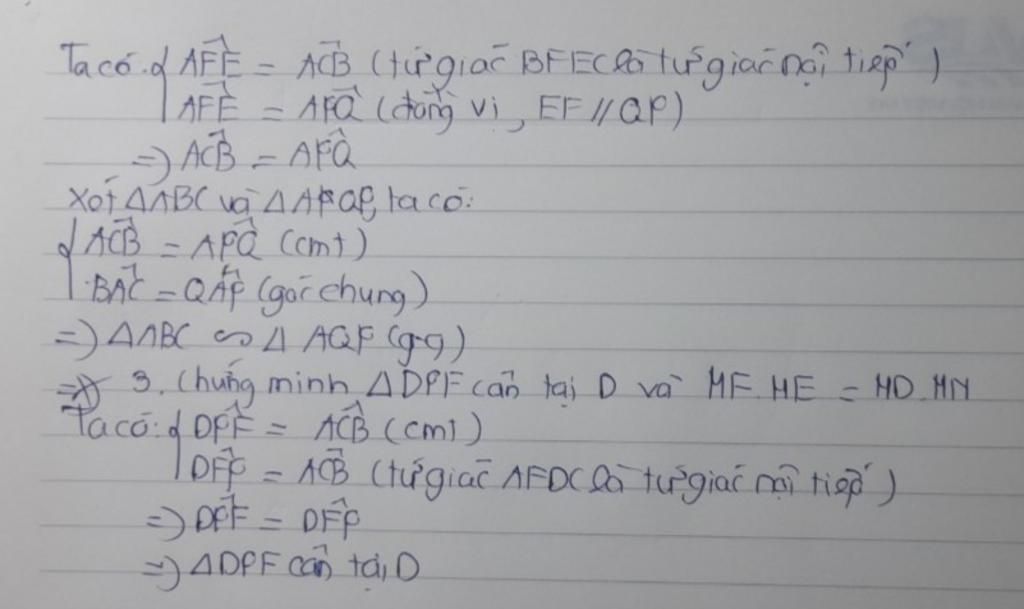 Ta có: { AFE = ACB (tứ giác BFEC là tứ giác nội tiếp)
AFE = APQ (đồng vị, EF // QP)
=> ACB = APQ
Xét ΔABC và ΔAPQP, ta có:
{ ACB = APQ (cmt)
BAC = QAP (góc chung)
=> ΔABC ∽ Δ AQP (g-g)
3. Chứng minh ΔDPF cân tại D và MF.ME = MD.MN
Ta có: { DPF = ACB (cmt)
DFP = ACB (tứ giác AFDC là tứ giác nội tiếp)
=> DPF = DFP
=> ΔDPF cân tại D